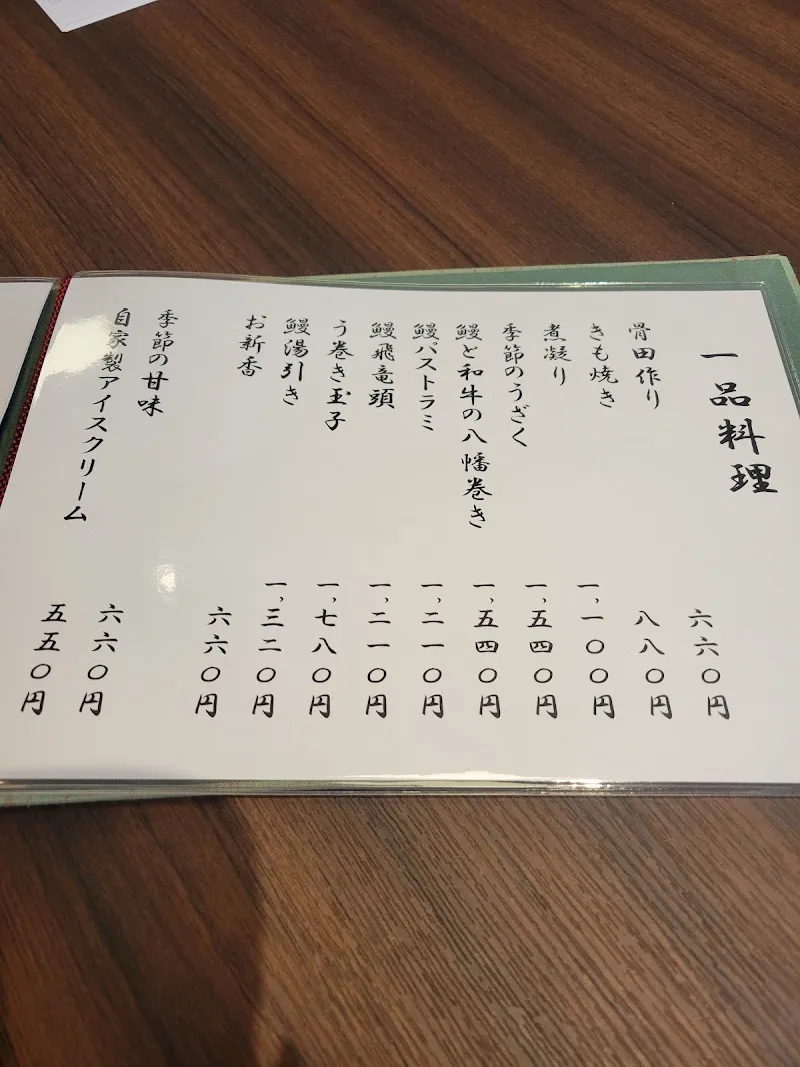 一品料理
骨田作り 六六〇円
きも焼き 八八〇円
煮凝り 一、一〇〇円
季節のうざく 一、五四〇円
鰻と和牛の八幡巻き 一、五四〇円
鰻パストラミ 一、二一〇円
鰻飛竜頭 一、二一〇円
う巻き玉子 一、七八〇円
鰻湯引き 一、三二〇円
お新香 六六〇円
季節の甘味 六六〇円
自家製アイスクリーム 五五〇円